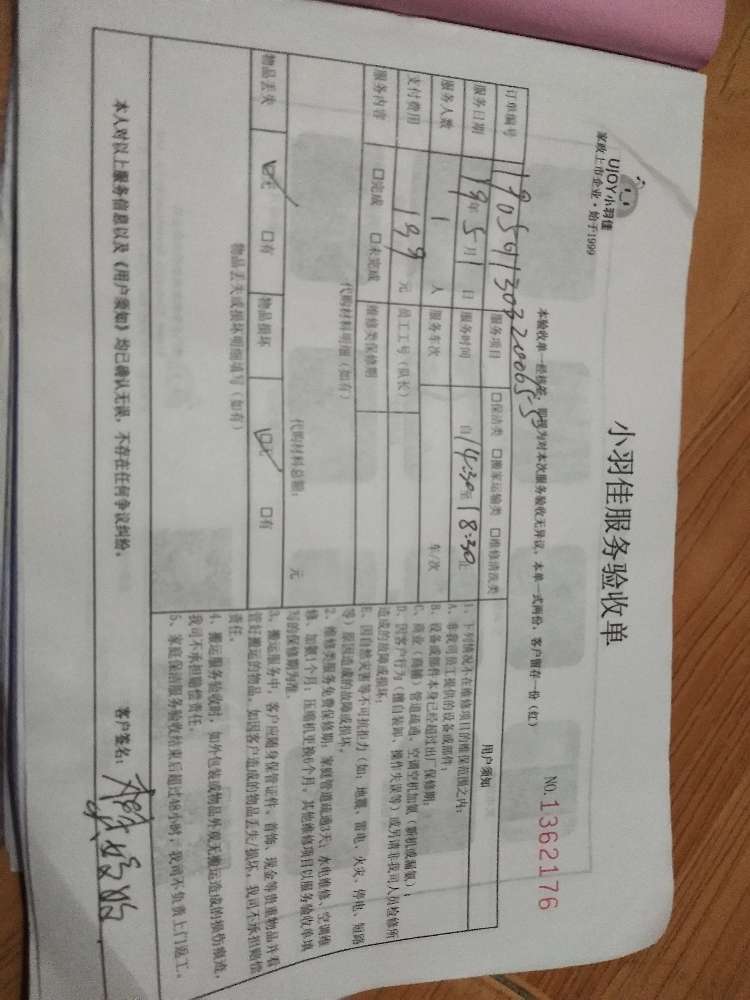 UJOY小羽佳
家政上市企业·始于1999
小羽佳服务验收单
NO.1362176
本验收单一经核签，即视为对本次服务验收无异议，本单一式两份，客户留存一份（红）
订单编号
服务项目 □保洁类 □搬家运输类 □维修清洗类
服务日期 19年5月1日 服务时间 自14:30至18:30止
服务人数 1人 服务车次 车/次
支付费用 199元 员工工号（队长）
服务内容 □完成 □未完成 维修类保修期
代购材料明细（如有）
代购材料总额： 元
物品丢失 ☑无 □有 物品损坏 ☑无 □有
物品丢失或损坏明细填写（如有）
用户须知
1、下列情况不在维修项目的维保范围之内：
A、非我司员工提供的设备或部件；
B、设备或部件本身已经超过出厂保修期；
C、商业（商铺）管道疏通、空调空机加氨（新机或漏氨）；
D、因客户行为（擅自装卸、操作失误等）或另请非我司人员检修所
造成的故障或损坏；
E、因自然灾害等不可抗拒力（如：地震、雷电、火灾、停电、短路
等）原因造成的故障或损坏。
2、维修类服务免费保修期：家庭管道疏通3天；水电维修、空调维
修、加氨1个月；压缩机更换6个月。其他维修项目以服务验收单填
写的保修期为准。
3、搬运服务中，客户应随身保管证件、首饰、现金等贵重物品并看
管好搬运的物品，如因客户造成的物品丢失/损坏，我司不承担赔偿
责任。
4、搬运服务验收时，如外包装或物品外观无搬运造成的损伤痕迹，
我司不承担赔偿责任。
5、家庭保洁服务验收结束后超过48小时，我司不负责上门返工。
本人对以上服务信息以及《用户须知》均已确认无误，不存在任何争议纠纷。
客户签名：